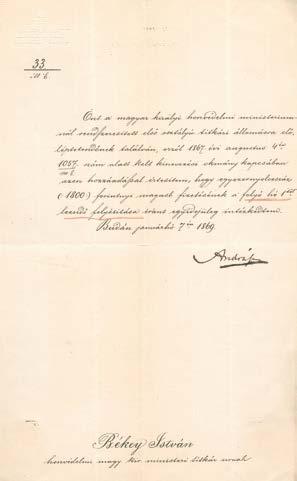 33
M. E.
Önt a magyar királyi honvédelmi ministerium-
nál rendszeresített első osztályú titkári állomásra elő-
léptetendőnek találván, erről 1867 évi augustus 4én
1087. szám alatt kelt kinevezési okmány kapcsában
m. E.
azon hozzáadással értesítem, hogy egyezernyolczszáz
(1800) forintnyi magasb fizetésének a folyó hó 1től
leendő folyósítása iránt egyidejűleg intézkedtem.
Budán januárhó 7én 1869
Andrássy
Békey István
honvédelmi magy. kir. ministeri titkár urnak